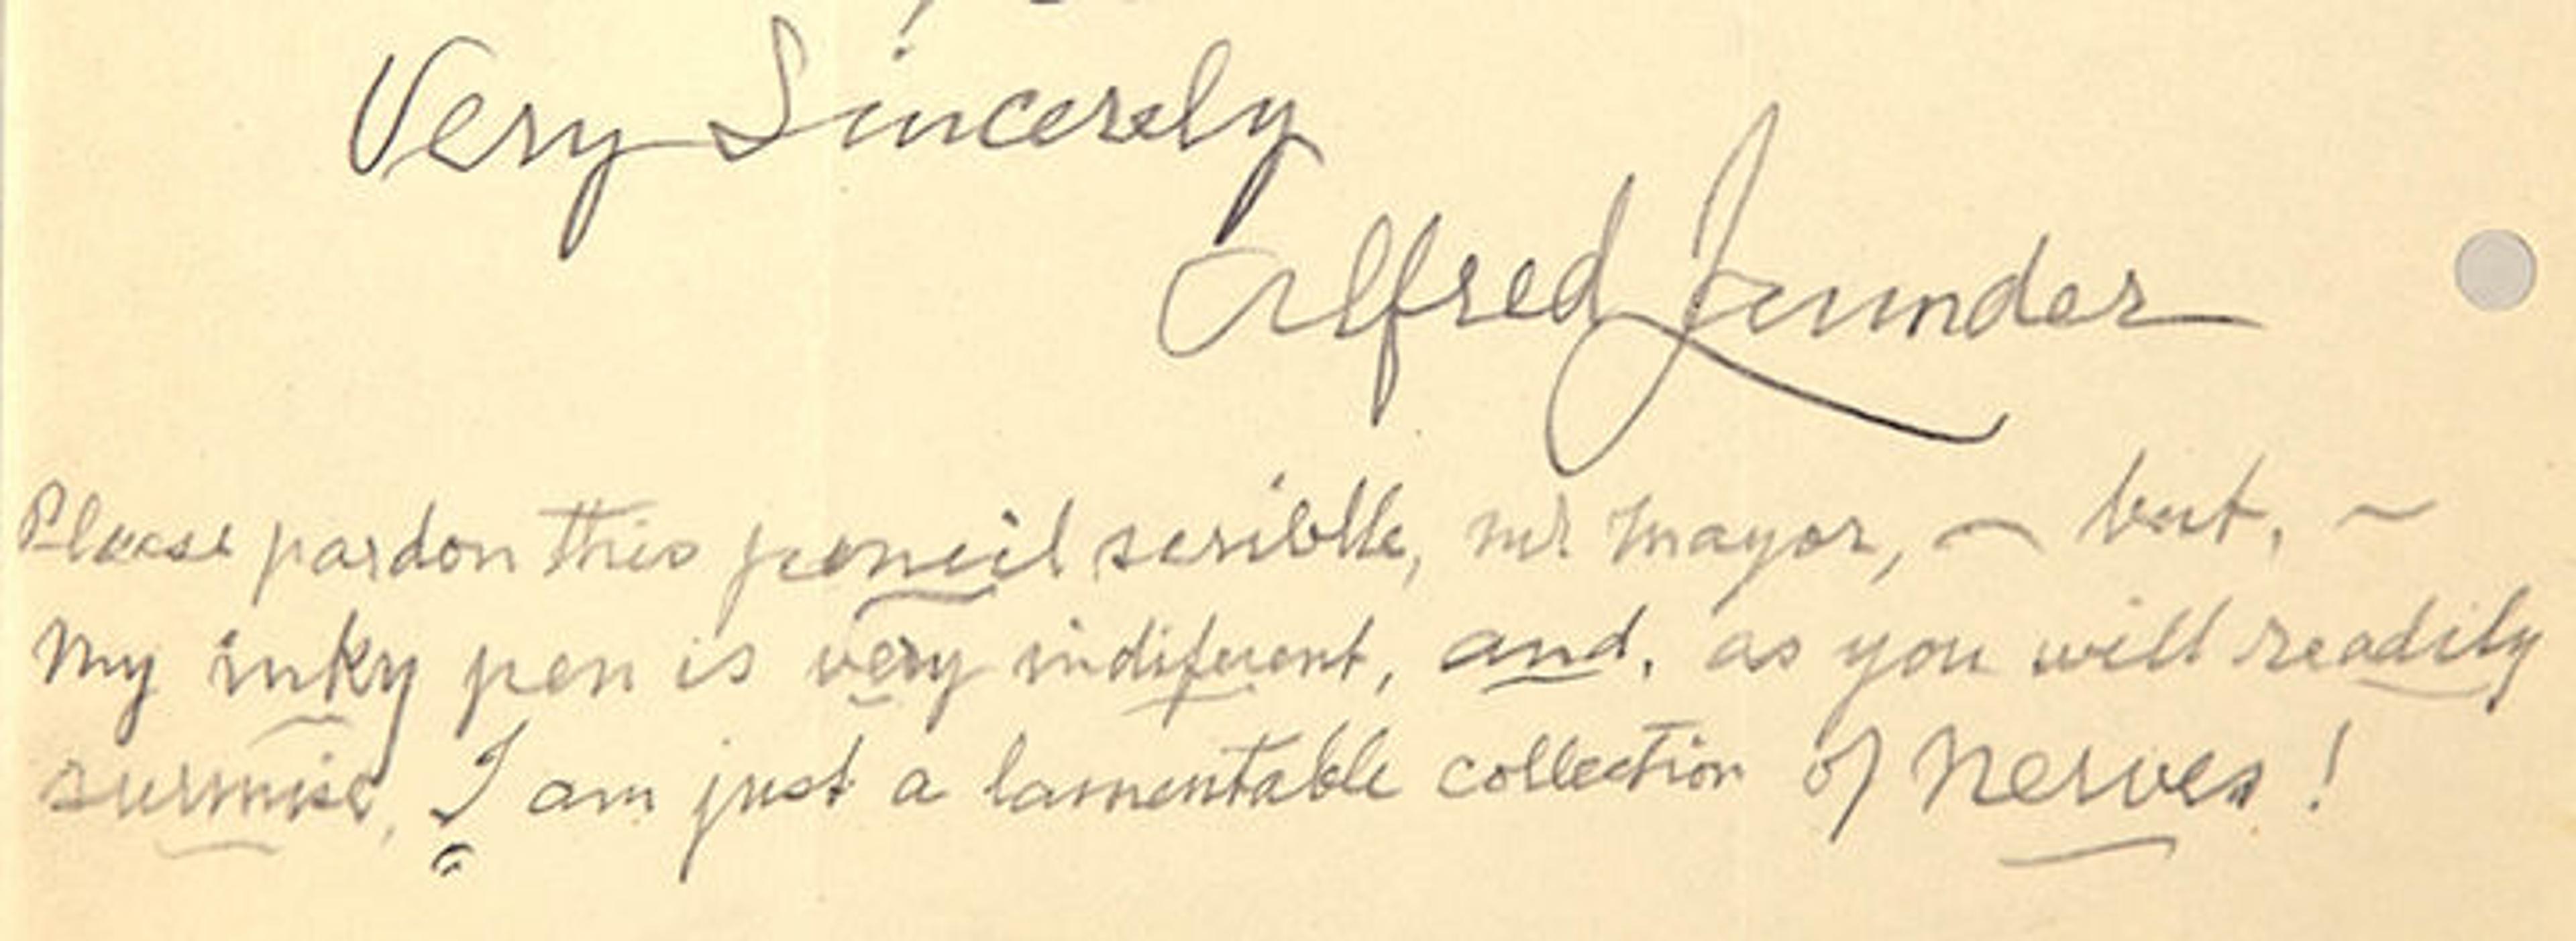 Very Sincerely
Alfred
Please pardon this pencil scribble, Mr Mayor, ~ but, ~
My inky pen is very indiferent, and, as you will readily
surmise, I am just a lamentable collection of Nerves!